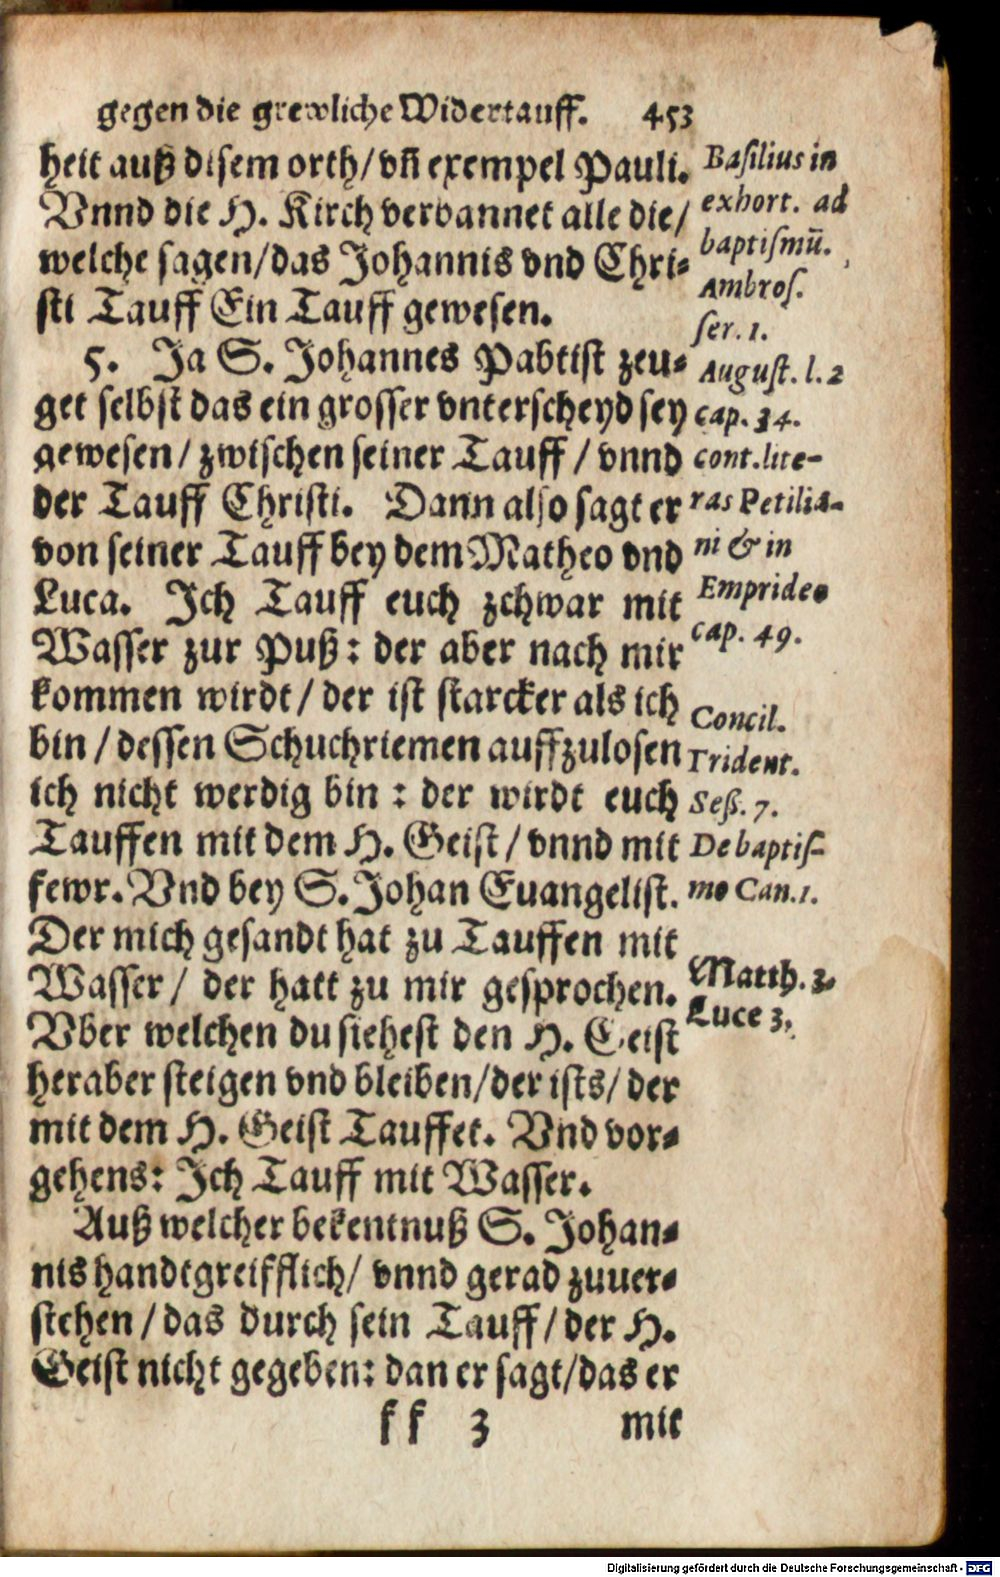 gegen die grewliche Widertauff. 453
heit auß disem orth/ vñ exempel Pauli.
Vnnd die H. Kirch verbannet alle die/
welche sagen/das Johannis vnd Chri-
sti Tauff Ein Tauff gewesen.
5. Ja S. Johannes Pabtist zeu-
get selbst das ein grosser vnterscheyd sey
gewesen/ zwischen seiner Tauff/ vnnd
der Tauff Christi. Dann also sagt er
von seiner Tauff bey dem Matheo vnd
Luca. Jch Tauff euch zchwar mit
Wasser zur Puß: der aber nach mir
kommen wirdt/ der ist starcker als ich
bin/ dessen Schuchriemen auffzulosen
ich nicht werdig bin: der wirdt euch
Tauffen mit dem H. Geist/ vnnd mit
fewr. Vnd bey S. Johan Euangelist.
Der mich gesandt hat zu Tauffen mit
Wasser/ der hatt zu mir gesprochen.
Vber welchen du siehest den H. Geist
heraber steigen vnd bleiben/der ists/ der
mit dem H. Geist Tauffet. Vnd vor-
gehens: Jch Tauff mit Wasser.
Auß welcher bekentnuß S. Johan-
nis handtgreifflich/ vnnd gerad zuuer-
stehen/ das durch sein Tauff/ der H.
Geist nicht gegeben: dan er sagt/das er
ff 3 mit
Basilius in
exhort. ad
baptismũ.
Ambros.
ser. 1.
August. l. 2
cap. 34.
cont. lite-
ras Petilia-
ni & in
Empride.
cap. 49.
Concil.
Trident.
Seß. 7.
De baptis-
mo Can. 1.
Matth. 3.
Luce 3.
Digitalisierung gefördert durch die Deutsche Forschungsgemeinschaft - DFG